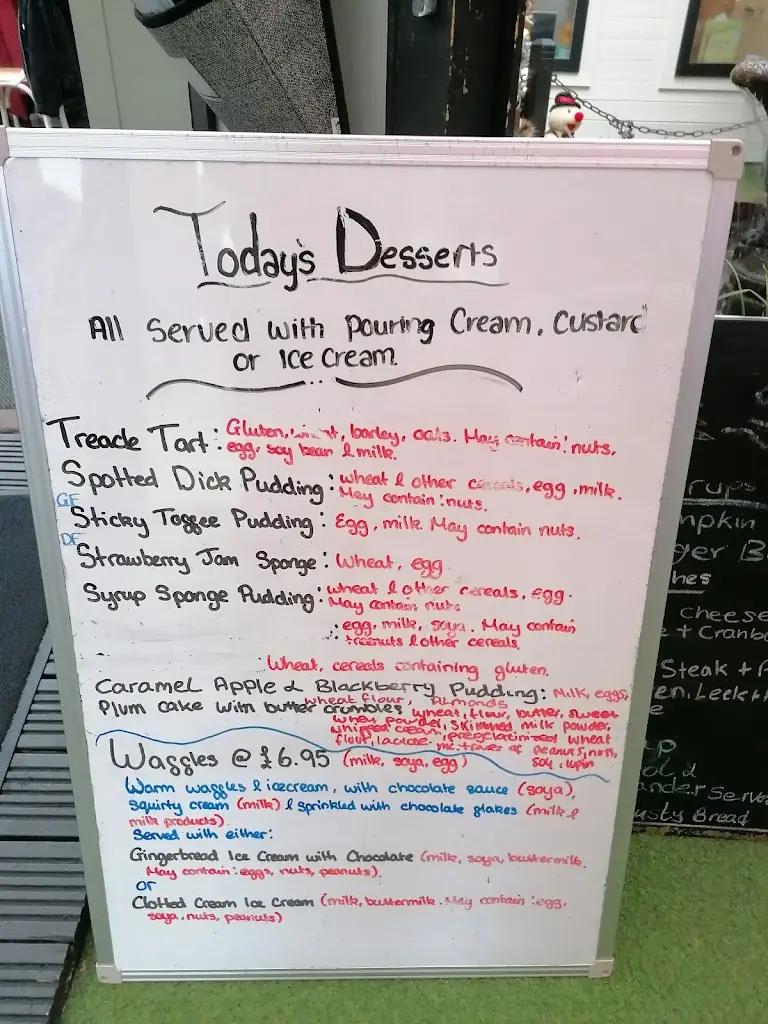 Today's Desserts
All Served with Pouring Cream, Custard
or Ice Cream.
Treacle Tart: Gluten, barley, oats. May contain: nuts,
egg, soy bean & milk.
Spotted Dick Pudding: wheat & other cereals, egg, milk.
May contain: nuts.
GF
Sticky Toffee Pudding: Egg, milk. May contain nuts.
DF
Strawberry Jam Sponge: Wheat, egg
Syrup Sponge Pudding: wheat & other cereals, egg.
May contain nuts
egg, milk, soya. May contain
treenuts & other cereals.
Wheat, cereals containing gluten.
Caramel Apple & Blackberry Pudding: Milk, eggs,
wheat flour, Almonds
Plum cake with butter crumbles wheat, flour, butter, sweet
whey powder, skimmed milk powder,
whipped cream, pregelatinized wheat
flour, lactose. traces of peanuts, nuts,
soy, lupin
Waffles @ £6.95 (milk, soya, egg)
Warm waffles & icecream, with chocolate sauce (soya),
Squirty cream (milk) & sprinkled with chocolate flakes (milk &
milk products).
Served with either:
Gingerbread Ice Cream with Chocolate (milk, soya, buttermilk.
May contain: eggs, nuts, peanuts).
or
Clotted Cream Ice Cream (milk, buttermilk. May contain: egg,
soya, nuts, peanuts)
rups
mpkin
ger B
hes
Cheese
+ Cranb
Steak + P
en, Leek +
e
up
and
ander Serve
usty Bread